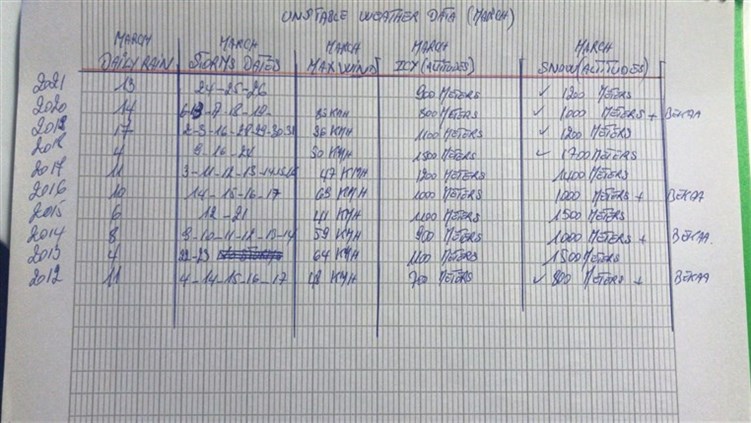 UNSTABLE WEATHER DATA (MARCH)
MARCH DAILY RAIN MARCH STORMS DATES MARCH MAX WIND MARCH ICY (ALTITUDES) MARCH SNOW (ALTITUDES)
2021 13 24-25-26 900 METERS ✓ 1200 METERS
2020 14 -18-19- KMH 800 METERS ✓ 1000 METERS + BEKAA
2019 17 2-3-16-28-29-30-31 36 KMH 1100 METERS ✓ 1200 METERS
2018 4 9-16-24 50 KMH METERS ✓ 1700 METERS
2017 11 3-11-12-13-14-15-16 47 KMH 1200 METERS 1400 METERS
2016 10 14-15-16-17 63 KMH 1000 METERS 1000 METERS + BEKAA
2015 6 12-21 41 KMH 1100 METERS 1500 METERS
2014 8 9-10-11-12-13-14 59 KMH 900 METERS 1000 METERS + BEKAA
2013 4 22-23 64 KMH 1100 METERS 1500 METERS
2012 11 4-14-15-16-17 KMH 700 METERS ✓ 800 METERS + BEKAA